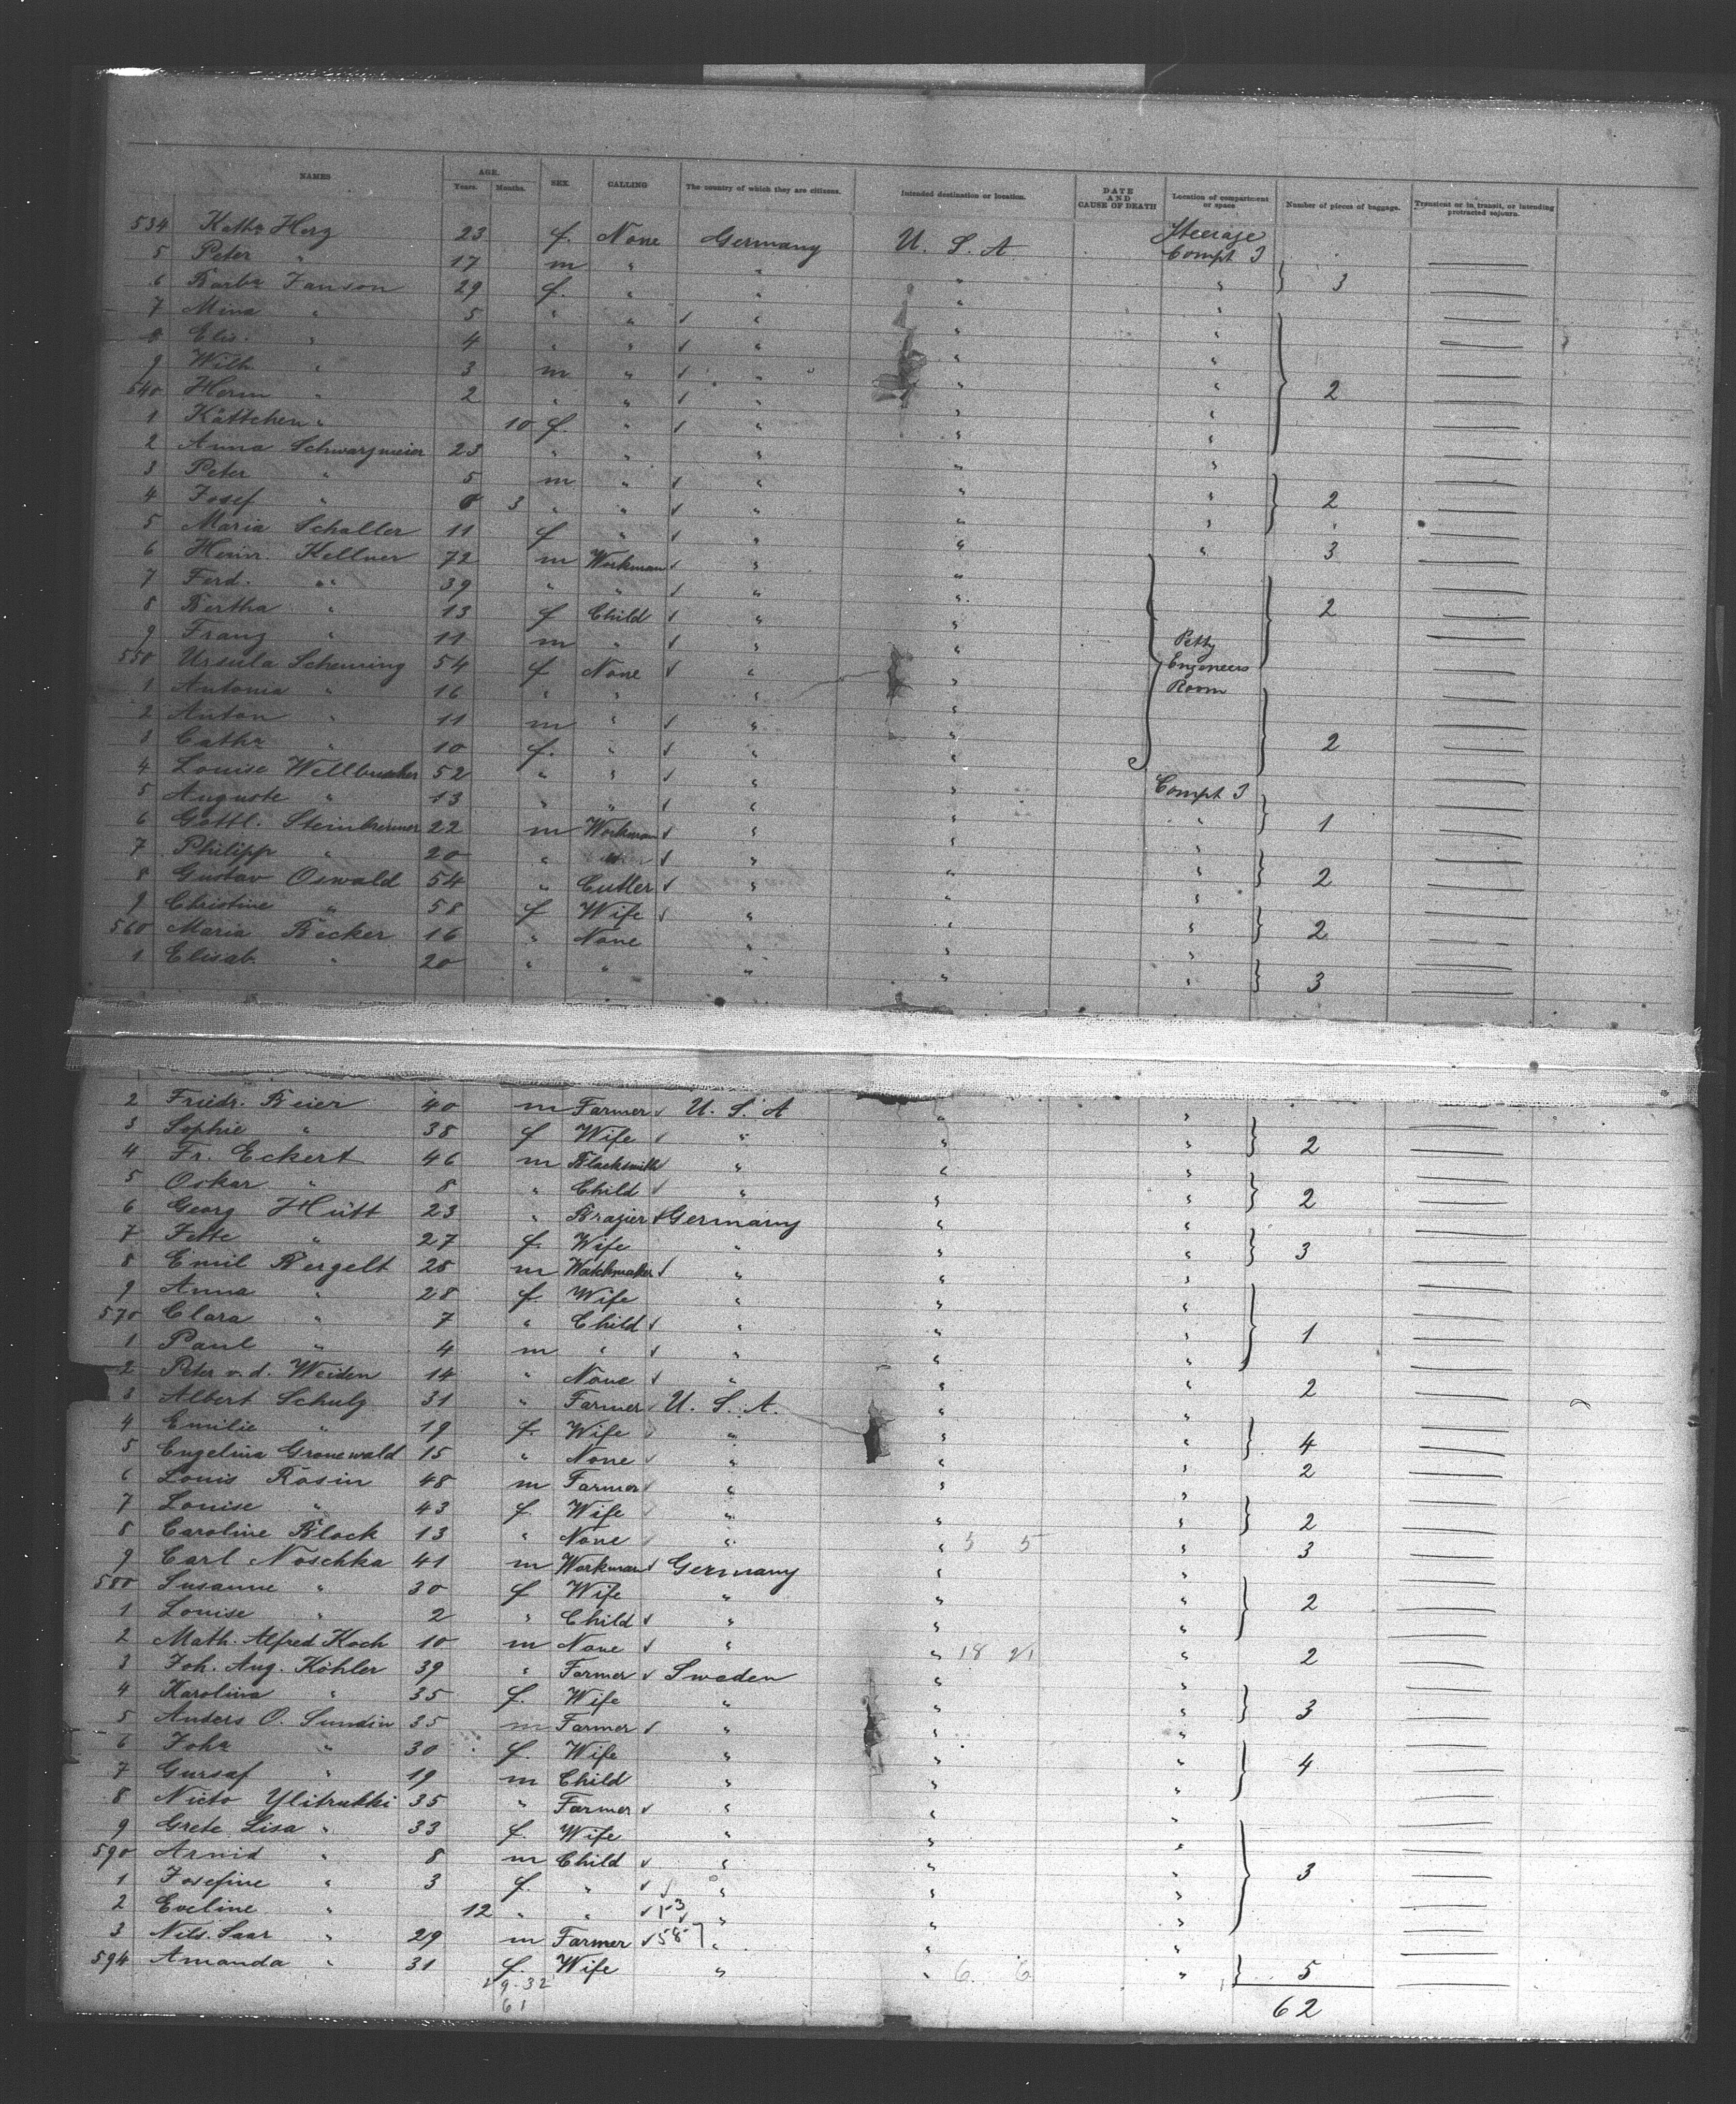 NAMES AGE. Years. Months. SEX CALLING The country of which they are citizens. Intended destination or location. DATE AND CAUSE OF DEATH Location of compartment or space Number of pieces of baggage. Transient or in transit, or intending protracted sojourn.
534 Katha Herz 23 f. None Germany U. S. A. Steerage Compt 3
5 Peter " 17 m " " " " } 3
6 Barba Janson 29 f. " " " "
7 Mina " 5 " " " " "
8 Elis. " 4 " " " " "
9 Wilh. " 3 m " " " "
540 Herm " 2 " " " " " } 2
1 Kättchen " 10 f. " " " "
2 Anna Schwarzmeier 23 " " " " "
3 Peter " 5 m " " " "
4 Josef " 0 3 " " " " " } 2
5 Maria Schaller 11 f " " " " 3
6 Heinr. Kellner 72 m Workman " "
7 Ferd. " 39 " " " "
8 Bertha " 13 f Child " " } 2
9 Franz " 11 m " " " Petty
550 Ursula Scheuring 54 f None " " Engineers
1 Antonia " 16 " " " " Room
2 Anton " 11 m " " "
3 Catha " 10 f. " " " } 2
4 Louise Wellbuscher 52 " " " " Compt 3
5 Auguste " 13 " " " " " } 1
6 Gottl. Steinbrenner 22 m Workman " " "
7 Philipp " 20 " " " " " } 2
8 Gustav Oswald 54 " Cutler " " "
9 Christine " 58 f Wife " " " } 2
560 Maria Böcker 16 " None " " "
1 Elisab. " 20 " " " " " } 3
2 Friedr. Beier 40 m Farmer U. S. A " "
3 Sophie " 38 f Wife " " " } 2
4 Fr. Eckert 46 m Blacksmith " " "
5 Oskar " 8 " Child " " " } 2
6 Georg Hütt 23 " Brazier Germany " "
7 Jette " 27 f. Wife " " " } 3
8 Emil Bergelt 28 m Watchmaker " " "
9 Anna " 28 f. Wife " " "
570 Clara " 7 " Child " " " } 1
1 Paul " 4 m " " " "
2 Peter v. d. Weiden 14 " None " " " 2
3 Albert Schulz 31 " Farmer U. S. A. " "
4 Emilie " 19 f. Wife " " " } 4
5 Engelina Gronewald 15 " None " " " 2
6 Louis Rosin 48 m Farmer " " "
7 Louise " 43 f. Wife " " " } 2
8 Caroline Block 13 " None " " 5 5 " 3
9 Carl Noschka 41 m Workman Germany " "
580 Susanne " 30 f Wife " " " } 2
1 Louise " 2 " Child " " "
2 Math. Alfred Koch 10 m None " " 18 21 " 2
3 Joh. Aug. Köhler 39 " Farmer Sweden " "
4 Karolina " 35 f. Wife " " " } 3
5 Anders O. Sundin 35 m Farmer " " "
6 Joha " 30 f. Wife " " " } 4
7 Gustaf " 19 m Child " " "
8 Nicto Ylitrukki 35 " Farmer " " "
9 Grete Lisa " 33 f. Wife " " "
590 Arvid " 8 m Child " " " } 3
1 Josefine " 3 f. " " " "
2 Eveline " 12 " " 53 " " "
3 Nils. Saar " 29 m Farmer 587 " " "
594 Amanda " 31 f. Wife " " 6 6 " } 5
29-32 62
61